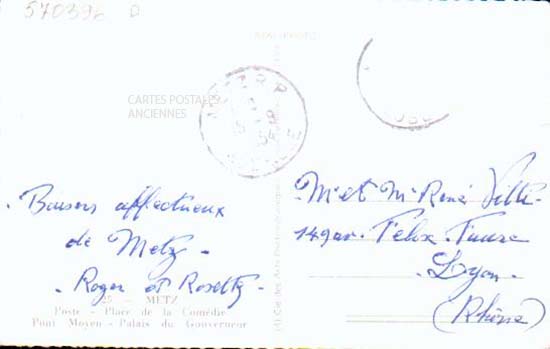 570396 D
CARTES POSTALES
ANCIENNES
Baisers affectueux
de Metz -
Roger et Rosette -
25 - METZ
Poste - Place de la Comédie
Pont Moyen - Palais du Gouverneur
M et Me René
149 av. Félix Faure
Lyon -
(Rhône)